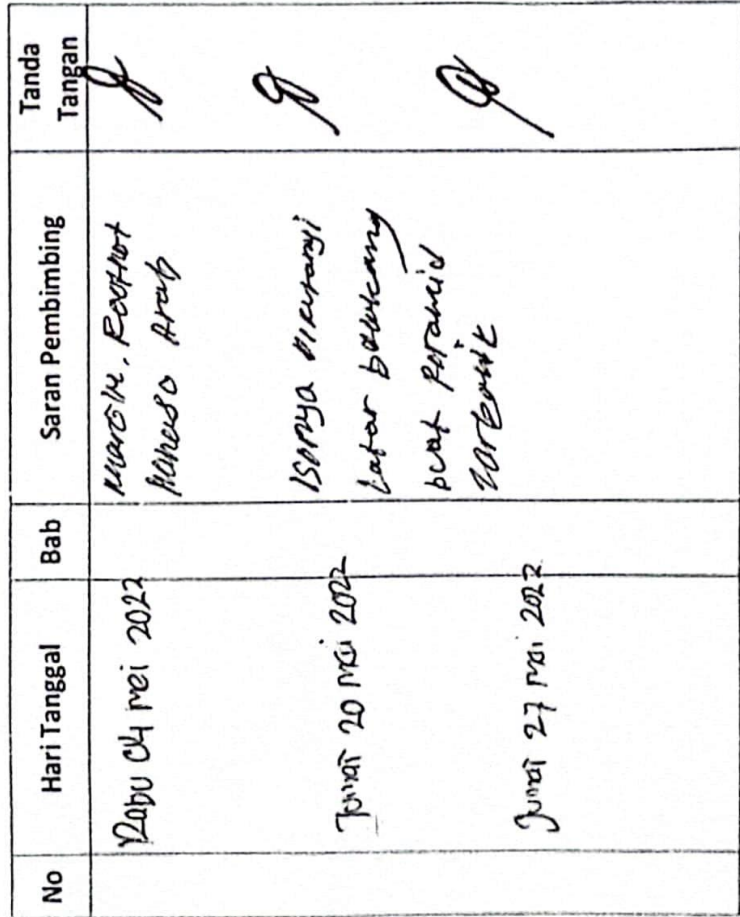 No Hari Tanggal Bab Saran Pembimbing Tanda Tangan
Rabu 04 mei 2022
Margin, Footnot
Bahasa Arab
Jumat 20 mei 2022
Isonya dikurangi
Latar belakang
Jumat 27 mei 2022